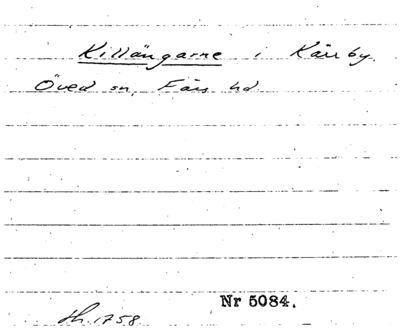 Killängarne i Kärrby.
Öved sn, Färs hd.
Nr 5084.
Sk. 1758